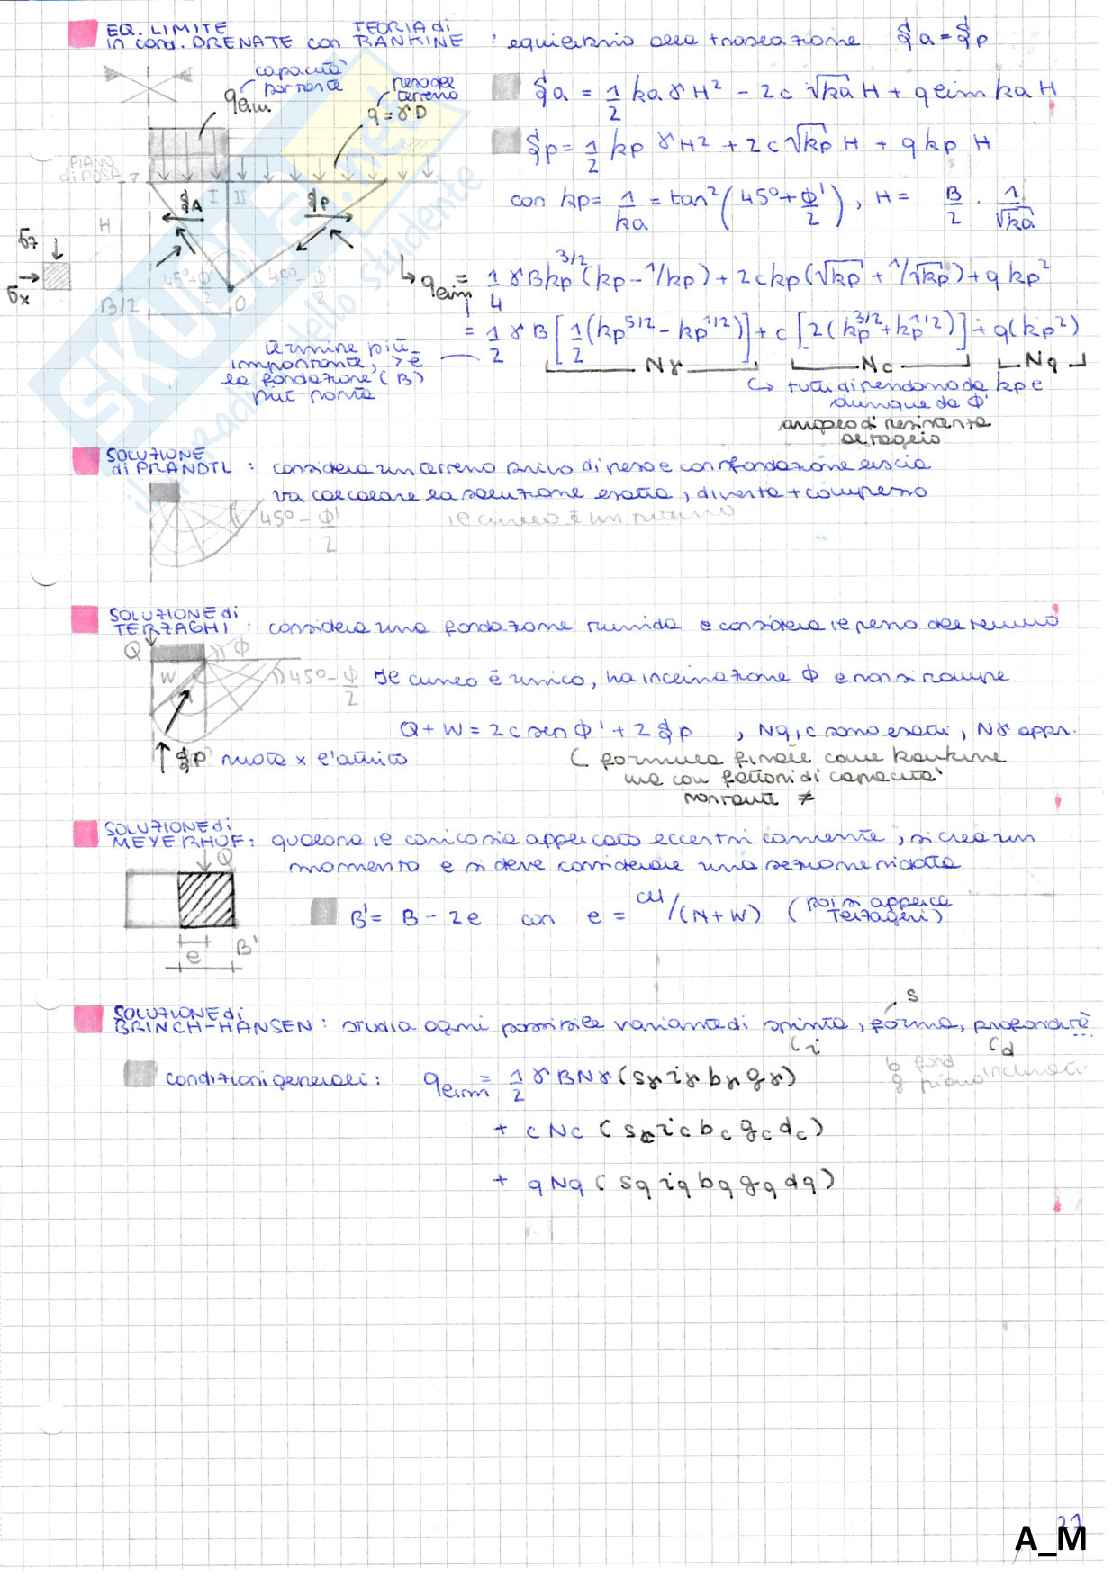 EQ. LIMITE TEORIA di
in cond. DRENATE con RANKINE : equilibrio alla traslazione Sa = Sp
capacità portante
qlim
peso del terreno
q = γD
Sa = 1/2 ka γ H² - 2c √ka H + qlim ka H
PIANO di posa
Sp = 1/2 kp γ H² + 2c √kp H + q kp H
SA I II Sp
con kp = 1/ka = tan²(45° + Φ'/2), H = B/2 · 1/√ka
H
σz
σx
45° - Φ'/2
O
B/2
↳ qlim = 1/4 γ B kp^3/2 (kp - 1/kp) + 2c kp (√kp + 1/√kp) + q kp²
= 1/2 γ B [1/2 (kp^5/2 - kp^1/2)] + c [2(kp^3/2 + kp^1/2)] + q(kp²)
Nγ Nc Nq
termine più importante, > è la fondazione (B) più porta
↳ tutti dipendono da kp e
dunque da Φ'
angolo di resistenza
al taglio
SOLUZIONE
di PRANDTL : considera un terreno privo di peso e con fondazione liscia
va calcolare la soluzione esatta, diversa + complesso
45° - Φ'/2
il cuneo è un
SOLUZIONE di
TERZAGHI : considera una fondazione ruvida e considera il peso del terreno
Q
Φ
W
45° - Φ/2
Il cuneo è unico, ha inclinazione Φ e non si rompe
Q + W = 2c sen Φ' + 2 Sp , Nq,c sono esatti, Nγ appr.
Sp ruota x l'attrito
( formula finale come Rankine
ma con fattori di capacità
portante ≠
SOLUZIONE di
MEYERHOF: qualora il carico sia applicato eccentricamente, si crea un
Q
momento e si deve considerare una sezione ridotta
B' = B - 2e con e = M/(N+W) (poi si applica Terzaghi)
e B'
SOLUZIONE di
BRINCH-HANSEN: studia ogni possibile variante di spinta, forma, profondità
s
i d
b fond
g piano inclinati
condizioni generali: qlim = 1/2 γ B Nγ (sγ iγ bγ gγ)
+ c Nc (sc ic bc gc dc)
+ q Nq (sq iq bq gq dq)
SKUOLA.net
il paradiso dello studente
27
A_M